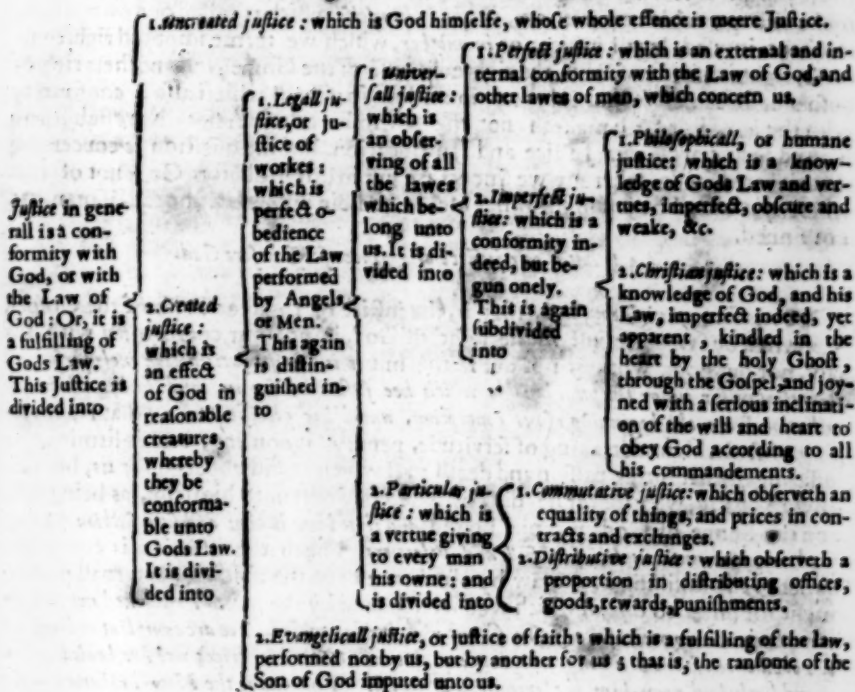 Justice in gene-
rall is a con-
formity with
God, or with
the Law of
God: Or, it is
a fulfilling of
Gods Law.
This Justice is
divided into
1. Uncreated justice: which is God himselfe, whose whole essence is meere Justice.
2. Created
justice:
which is
an effect
of God in
reasonable
creatures,
whereby
they be
conforma-
ble unto
Gods Law.
It is divi-
ded into
1. Legall ju-
stice, or ju-
stice of
workes:
which is
perfect o-
bedience
of the Law
performed
by Angels
or Men.
This again
is distin-
guished in-
to
1 univer-
sall justice:
which is
an obser-
ving of all
the lawes
which be-
long unto
us. It is di-
vided into
1. Perfect justice: which is an external and in-
ternal conformity with the Law of God, and
other lawes of men, which concern us.
2. Imperfect ju-
stice: which is a
conformity in-
deed, but be-
gun onely.
This is again
subdivided
into
1. Philosophicall, or humane
justice: which is a know-
ledge of Gods Law and ver-
tues, imperfect, obscure and
weake, &c.
2. Christian justice: which is a
knowledge of God, and his
Law, imperfect indeed, yet
apparent, kindled in the
heart by the holy Ghost,
through the Gospel, and joy-
ned with a serious inclinati-
on of the will and heart to
obey God according to all
his commandements.
2. Particular ju-
stice: which is
a vertue giving
to every man
his owne: and
is divided into
1. Commutative justice: which observeth an
equality of things, and prices in con-
tracts and exchanges.
2. Distributive justice: which observeth a
proportion in distributing offices,
goods, rewards, punishments.
2. Evangelicall justice, or justice of faith: which is a fulfilling of the law,
performed not by us, but by another for us; that is, the ransome of the
Son of God imputed unto us.